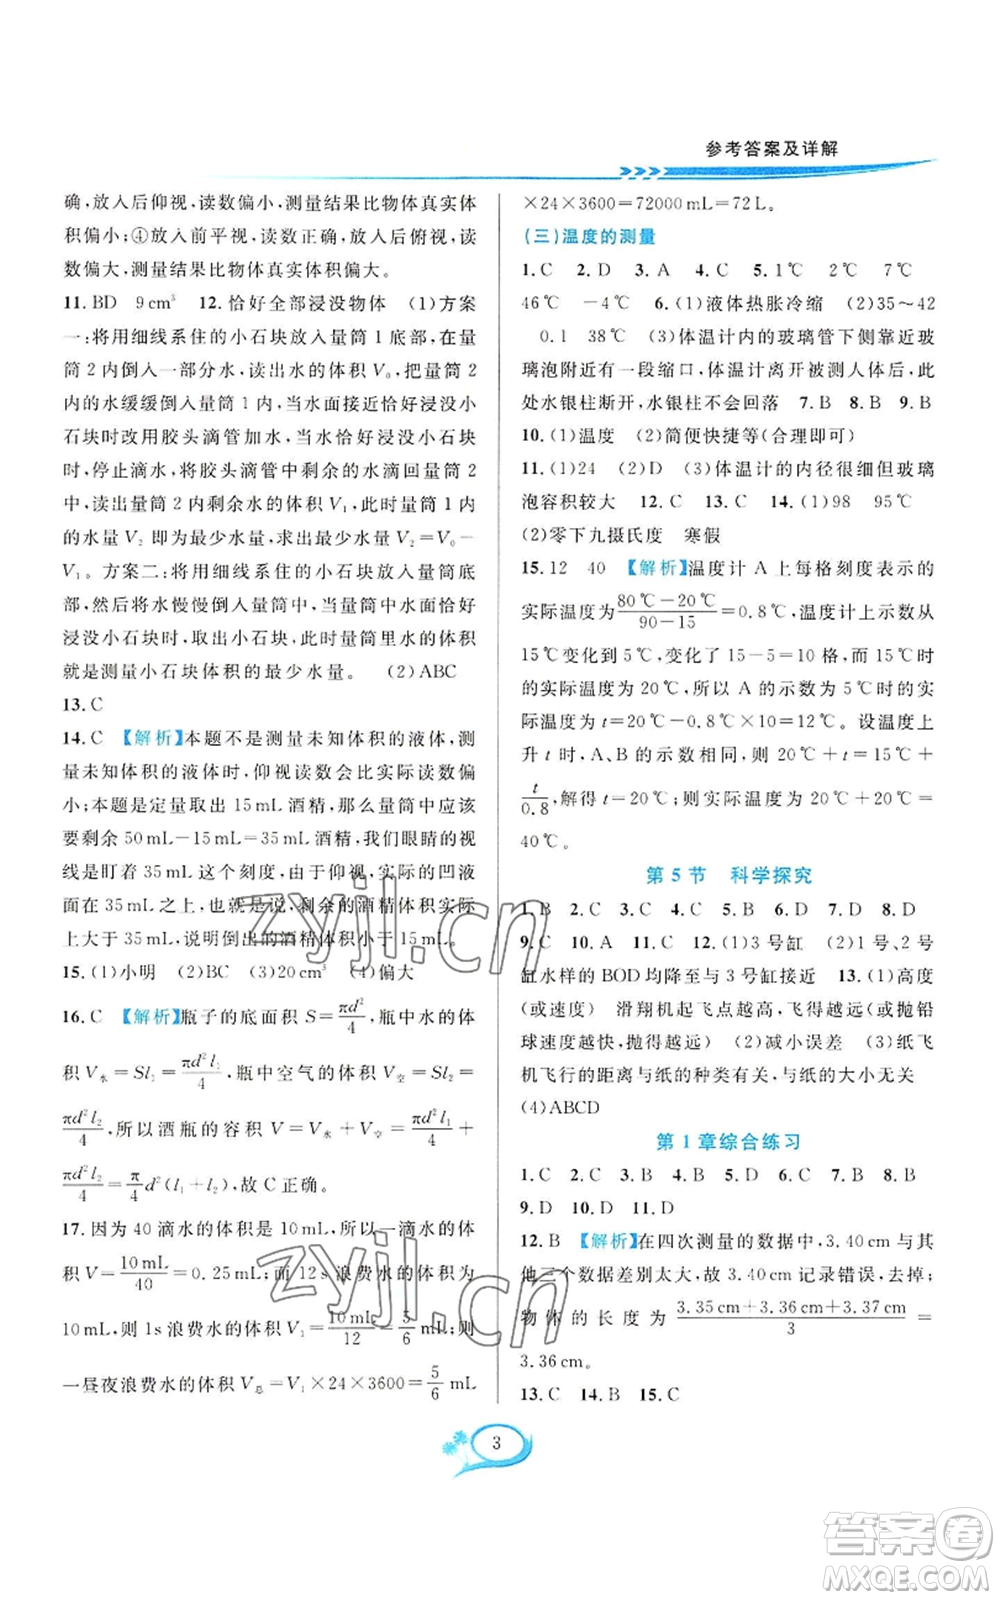 参考答案及详解
确,放入后仰视,读数偏小,测量结果比物体真实体
积偏小;④放入前平视,读数正确,放入后俯视,读
数偏大,测量结果比物体真实体积偏大。
11.BD 9cm³ 12.恰好全部浸没物体 (1)方案
一:将用细线系住的小石块放入量筒1底部,在量
筒2内倒入一部分水,读出水的体积V₀,把量筒2
内的水缓缓倒入量筒1中,当水面接近恰好浸没小
石块时改用胶头滴管加水,当水恰好浸没小石块
时,停止滴水,将胶头滴管中剩余的水滴回量筒2
中,读出量筒2内剩余水的体积V₁,此时量筒1中
的水量V₂即为最少水量,最少水量体积V₂=V₀−
V₁。方案二:将用细线系住的小石块放入量筒底
部,将水慢慢倒入量筒中,当筒内水面上升到恰好
浸没小石块时,取出小石块,此时量筒里水的体积
就是测量小石块体积的最少水量。 (2)ABC
13.C
14.C 【解析】本题不是测量未知体积的液体,测
量未知体积的液体时,仰视读数会比实际读数偏
小;本题是定量取出15mL酒精,那么量筒中应该
要剩余50mL−15mL=35mL酒精,我们眼睛的视
线是盯着35mL这个刻度,由于仰视,实际的凹液
面在35mL之上,也就是说,剩余的酒精体积实际
上大于35mL,说明倒出的酒精体积小于15mL。
15.(1)小明 (2)BC (3)20cm³ (4)偏大
16.C 【解析】瓶子的底面积S=πd²/4,瓶中水的体
积V水=Sl₁=πd²l₁/4,瓶中空气的体积V空=Sl₂=
πd²l₂/4,所以酒瓶的容积V=V水+V空=πd²l₁/4+
πd²l₂/4=π/4d²(l₁+l₂),故C正确。
17.因为40滴水的体积是10mL,所以一滴水的体
积V=10mL/40=0.25mL;而12s浪费水的体积为
10mL,则1s浪费水的体积V₁=10mL/12=5/6mL,则
一昼夜浪费水的体积V总=V₁×24×3600=5/6mL
×24×3600=72000mL=72L。
(三)温度的测量
1.C 2.D 3.A 4.C 5.1℃ 2℃ 37℃
46℃ −4℃ 6.(1)液体热胀冷缩 (2)35～42
0.1 38℃ (3)体温计内的玻璃管下侧靠近玻
璃泡附近有一段缩口,体温计离开被测人体后,此
处水银柱断开,水银柱不会回落 7.B 8.B 9.B
10.(1)温度 (2)简便快捷等(合理即可)
11.(1)24 (2)D (3)体温计的内径很细但玻璃
泡容积较大 12.C 13.C 14.(1)98 95℃
(2)零下九摄氏度 寒假
15.12 40 【解析】温度计A上每格刻度表示的
实际温度为80℃−20℃/90−15=0.8℃,温度计上示数从
15℃变化到5℃,变化了15−5=10格,而15℃时
的实际温度为20℃,所以A的示数为5℃时的实
际温度为t=20℃−0.8℃×10=12℃。设温度上
升t时,A、B的示数相同,则20℃+t=15℃+
t/0.8,解得t=20℃;则实际温度为20℃+20℃=
40℃。
第5节 科学探究
1.B 2.C 3.C 4.C 5.B 6.D 7.D 8.D
9.C 10.A 11.C 12.(1)3号缸 (2)1号、2号
缸水样的BOD均降至与3号缸接近 13.(1)高度
(或速度) 滑翔机起飞点越高,飞得越远(或抛铅
球速度越快,抛得越远) (2)减小误差 (3)纸飞
机飞行的距离与纸的种类有关,与纸的大小无关
(4)ABCD
第1章综合练习
1.C 2.C 3.B 4.C 5.D 6.C 7.B 8.B
9.D 10.D 11.D
12.B 【解析】在四次测量的数据中,3.40cm与其
他三个数据差别太大,故3.40cm记录错误,去掉;
物体的长度为3.35cm+3.36cm+3.37cm/3=
3.36cm。
13.C 14.B 15.C
3
zyjl.cn
zyjl.cn
答案卷
MXQE.COM